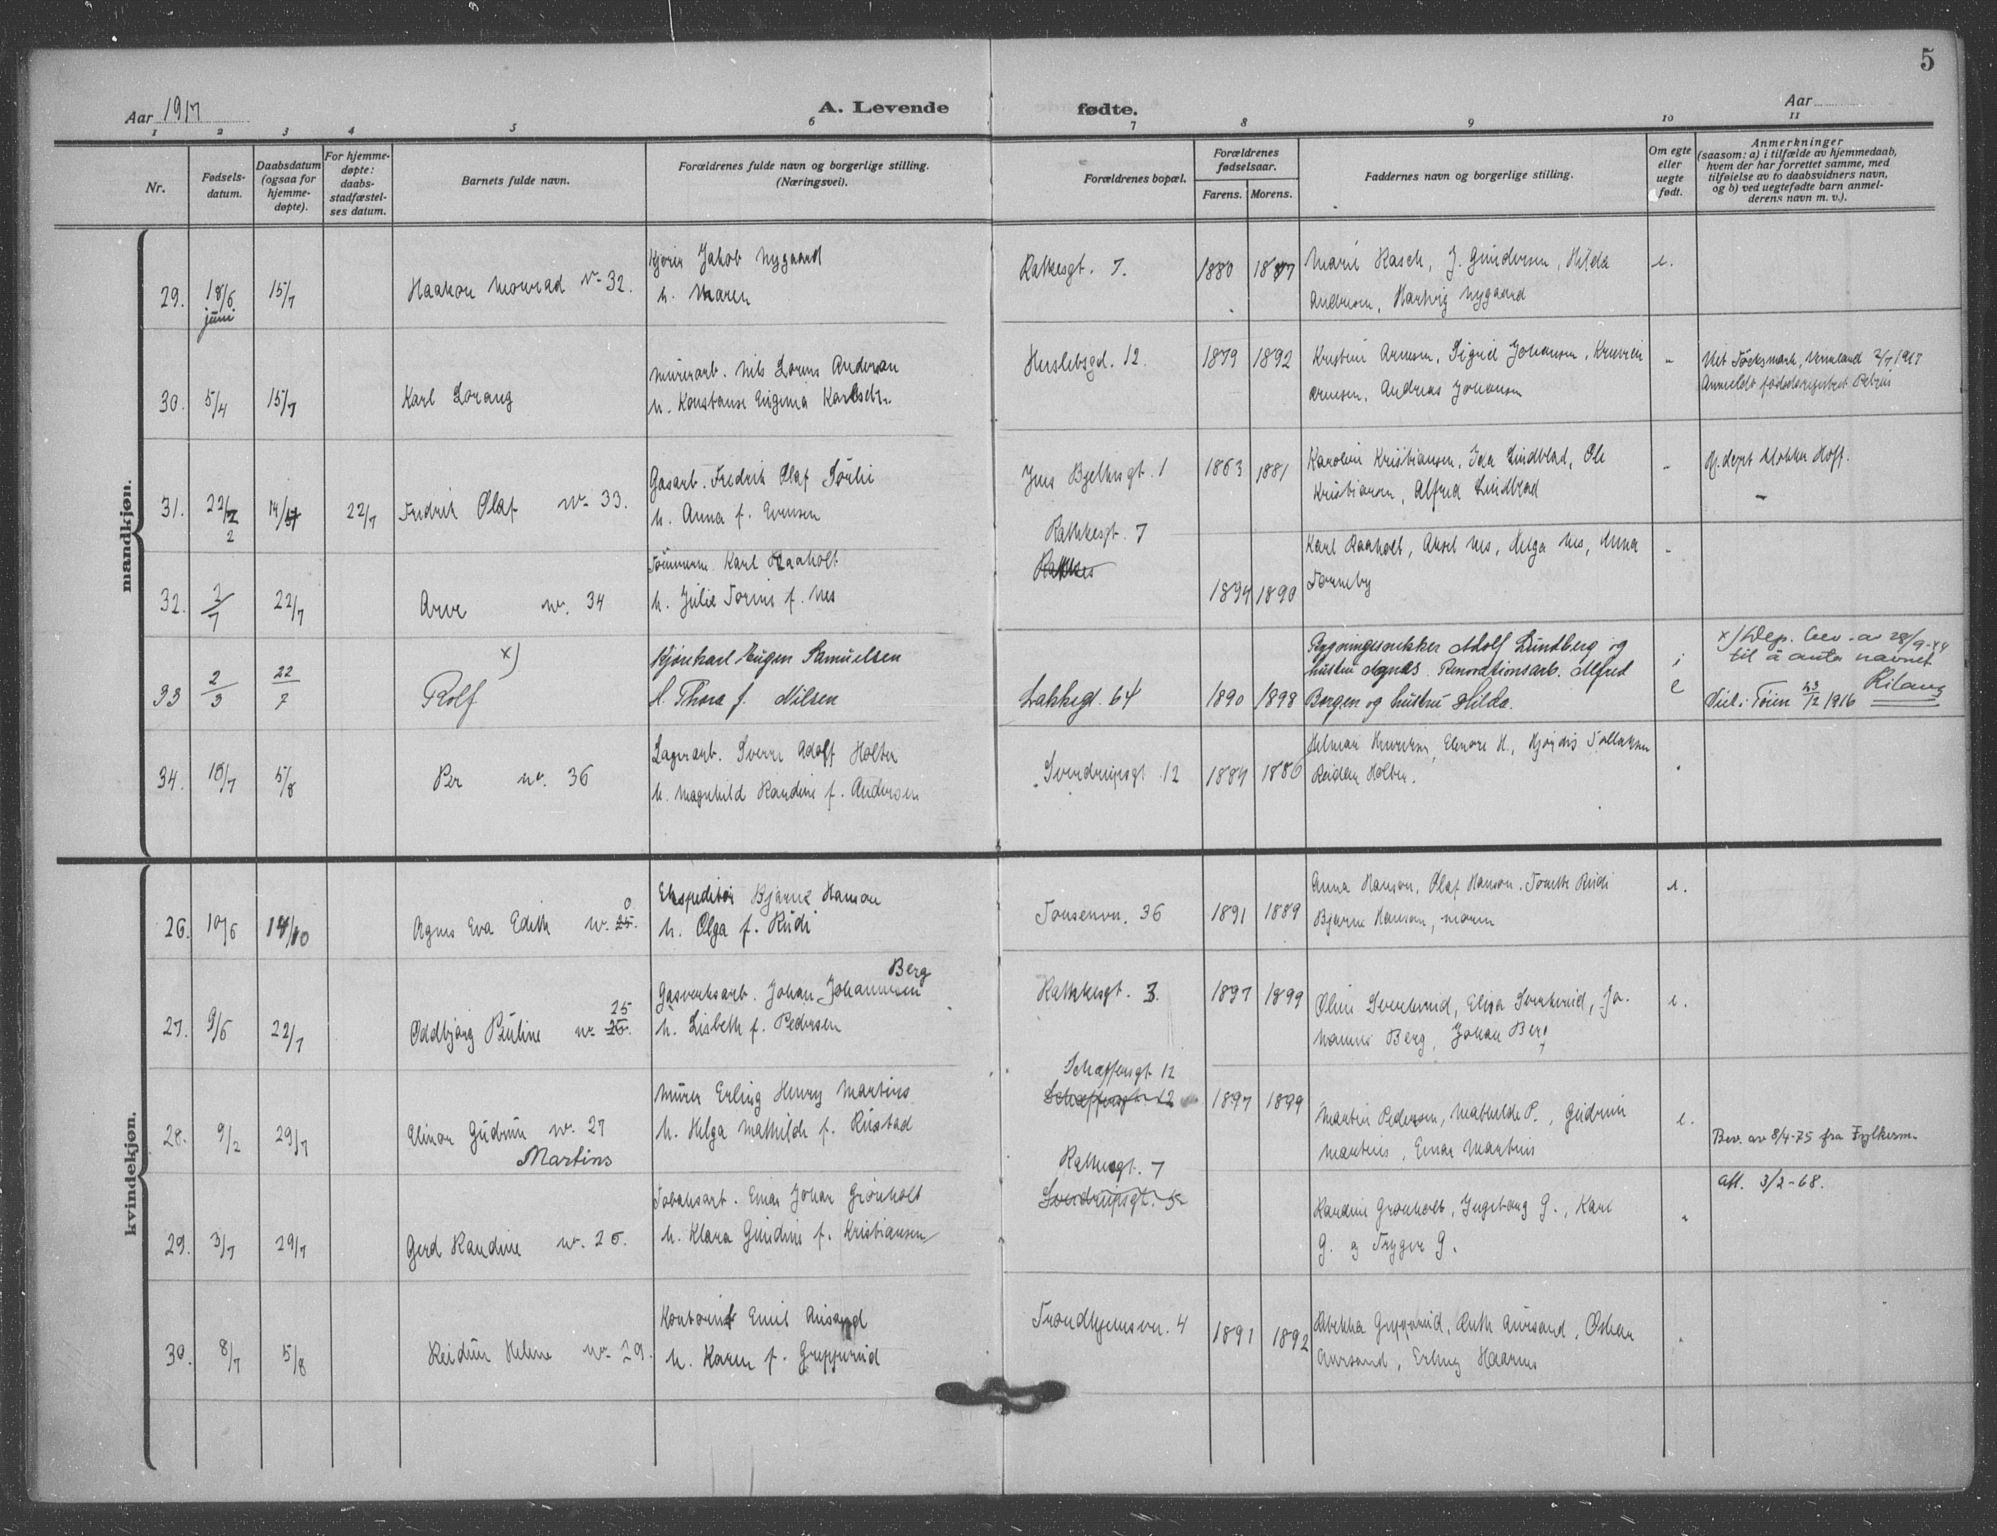 5
Aar 1917
A. Levende fødte.
Aar
1 2 3 4 5 6 7 8 9 10 11
Nr.
Fødsels-
datum.
Daabsdatum
(ogsaa for
hjemme-
døpte).
For hjemme-
døpte:
daabs-
stadfæstel-
ses datum.
Barnets fulde navn.
Forældrenes fulde navn og borgerlige stilling.
(Næringsvei).
Forældrenes bopæl.
Forældrenes
fødselsaar.
Farens. Morens.
Faddernes navn og borgerlige stilling.
Om egte
eller
uegte
født.
Anmerkninger
(saasom: a) i tilfælde av hjemmedaab,
hvem der har forrettet samme, med
tilføielse av to daabsvidners navn,
og b) ved uegtefødte barn anmel-
derens navn m. v.).
mandkjøn.
29. 18/6 15/7 Haakon Monrad Nr 32.
juni
Jakob Nygaard
h. Maren
Rathkesgt. 7. 1880 1887
Marie Rasch, J. Gundersen, Hilda
Andersen, Hartvig Nygaard
e.
30. 5/4 15/7 Karl Lorang
Murerarb. Nils Lorens Anderson
h. Konstanse Eugenia
Herslebsgd. 12. 1879 1892
Kristine Arnesen, Sigrid Johansen,
Arnesen, Andreas Johansen
"
Töcksmark, Vermland 2/7 1917
Anmeldt fødselsregistret
31. 22/2 14/ 22/7 Fredrik Olaf nr. 33.
2
Gasarb. Fredrik Olaf Sørlie
h. Anna f. Evensen
Jens Bjelkesgt. 1 1863 1881
Karoline Kristiansen, Ida Lindblad, Ole
Kristiansen, Alfred Lindblad
"
Hj.døpt klokker Hoff.
32. 2/7 22/7 Arve nr. 34
Karl Raaholt
h. Julie f. Nes
Rathkesgt. 7
Rathkes
1894 1890
Karl Raaholt, Aksel Nes, Helga Nes, Anna
Torneby
"
33 2/3 22/7 Rolf x)
Kjørekarl Eugen Samuelsen
H. Thora f. Nilsen
Lakkegd. 64 1890 1898
Bygningssnekker Adolf Lundberg og
hustru Agnes. Renovationsarb. Alfred
Borgen og hustru Hilda.
e
x) Dep. bev. av 28/9-44
til å anta navnet
Rilang
Viet i Tøien 23/12 1916
34. 18/7 5/8 Per nr. 36
Lagerarb. Sverre Adolf Holter
h. Magnhild Randine f. Andersen
Sverdrupsgt. 12 1884 1886
Helman Henriksen, Elenore H., Hjørdis Tollaksen
Reidun Holter.
"
kvindekjøn.
26. 10/6 14/10 Agnes Eva Edith nr. 25. 0
Ekspeditør Bjarne Hanson
h. Olga f. Rudi
Tonsenvn. 36 1891 1889
Anna Hanson, Olaf Hanson. Rudi
Bjarne Hanson, moren
e.
27. 9/6 22/7 Oddbjørg Pauline nr. 26. 25
Berg
Gasverksarb. Johan Johannesen
h. Lisbeth f. Pedersen
Rathkesgt. 3. 1897 1899
Oline Sverkerud, Elisa Sverkerud, Jo-
hannes Berg, Johan Berg
e.
28. 9/2 29/7 Elinor Gudrun nr. 27
Martins
Murer Erling Henry Martins
h. Helga Mathilde f. Rustad
Schæffersgt. 12
Schæffersgt. 12
1897 1899
Martin Pedersen, Mathilde P., Gudrun
Martins, Einar Martins
e.
Bev. av 8/4-75 fra Fylkesm.
29. 3/7 29/7 Gerd Randine nr. 26.
Tobaksarb. Einar Johan Grønholt
h. Klara Gundine f. Kristiansen
Rathkesgt. 7
Sverdrupsgt. 5
Randine Grønholt, Ingeborg G., Karl
G. og Trygve G.
"
att. 3/2-68.
30. 8/7 5/8 Reidun Helene nr. 29.
Kontorist Emil Aursand
h. Karen f. Grepperud
Trondhjemsvn. 4 1891 1892
Rebekka Grepperud, Ruth Aursand, Oskar
Aursand, Erling Haarnes
"